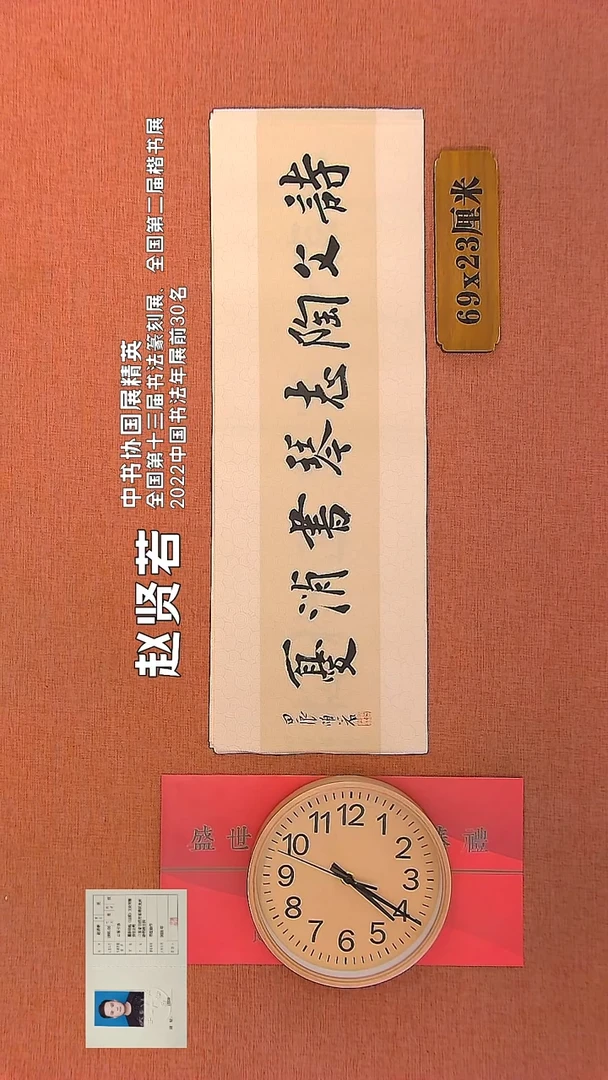 赵贤若
中书协国展精英
全国第十三届书法篆刻展、全国第二届楷书展
2022中国书法年展前30名
詩文陶志琴書消憂
69x23厘米
盛世 禮
12
1
2
3
4
5
6
7
8
9
10
11